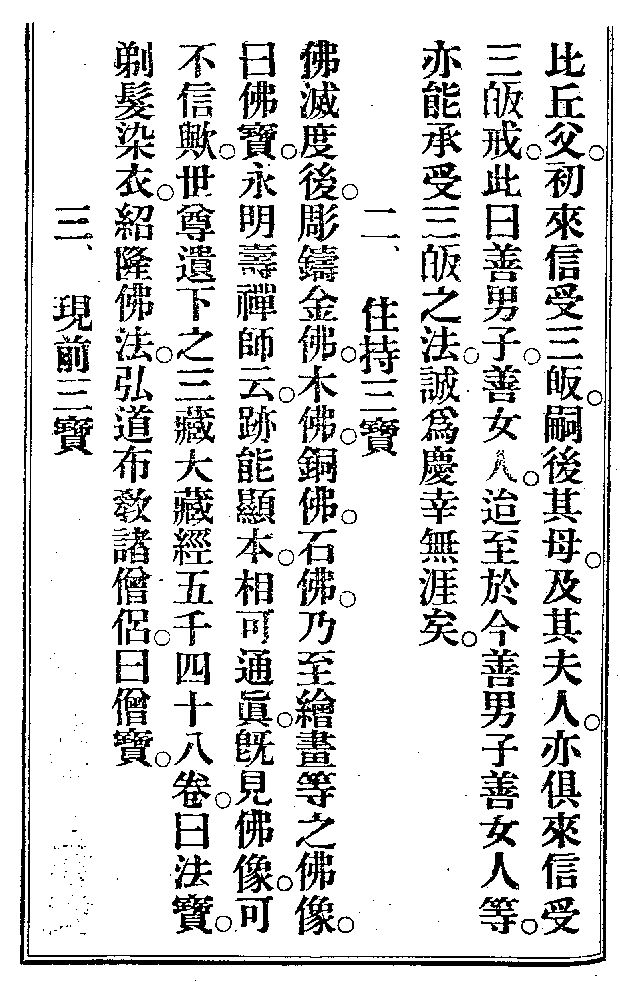 比丘父。初來信受三皈。嗣後其母。及其夫人。亦俱來信受
三皈戒。此曰善男子。善女人。迨至於今善男子善女人等。
亦能承受三皈之法。誠爲慶幸無涯矣。
二、住持三寶
佛滅度後。彫鑄金佛。木佛。銅佛。石佛。乃至繪畫等之佛像。
曰佛寶。永明壽禪師云。跡能顯本。相可通眞。旣見佛像。可
不信歟。世尊遺下之三藏大藏經五千四十八卷。曰法寶。
剃髮染衣。紹隆佛法。弘道布敎諸僧侶。曰僧寶。
三、現前三寶